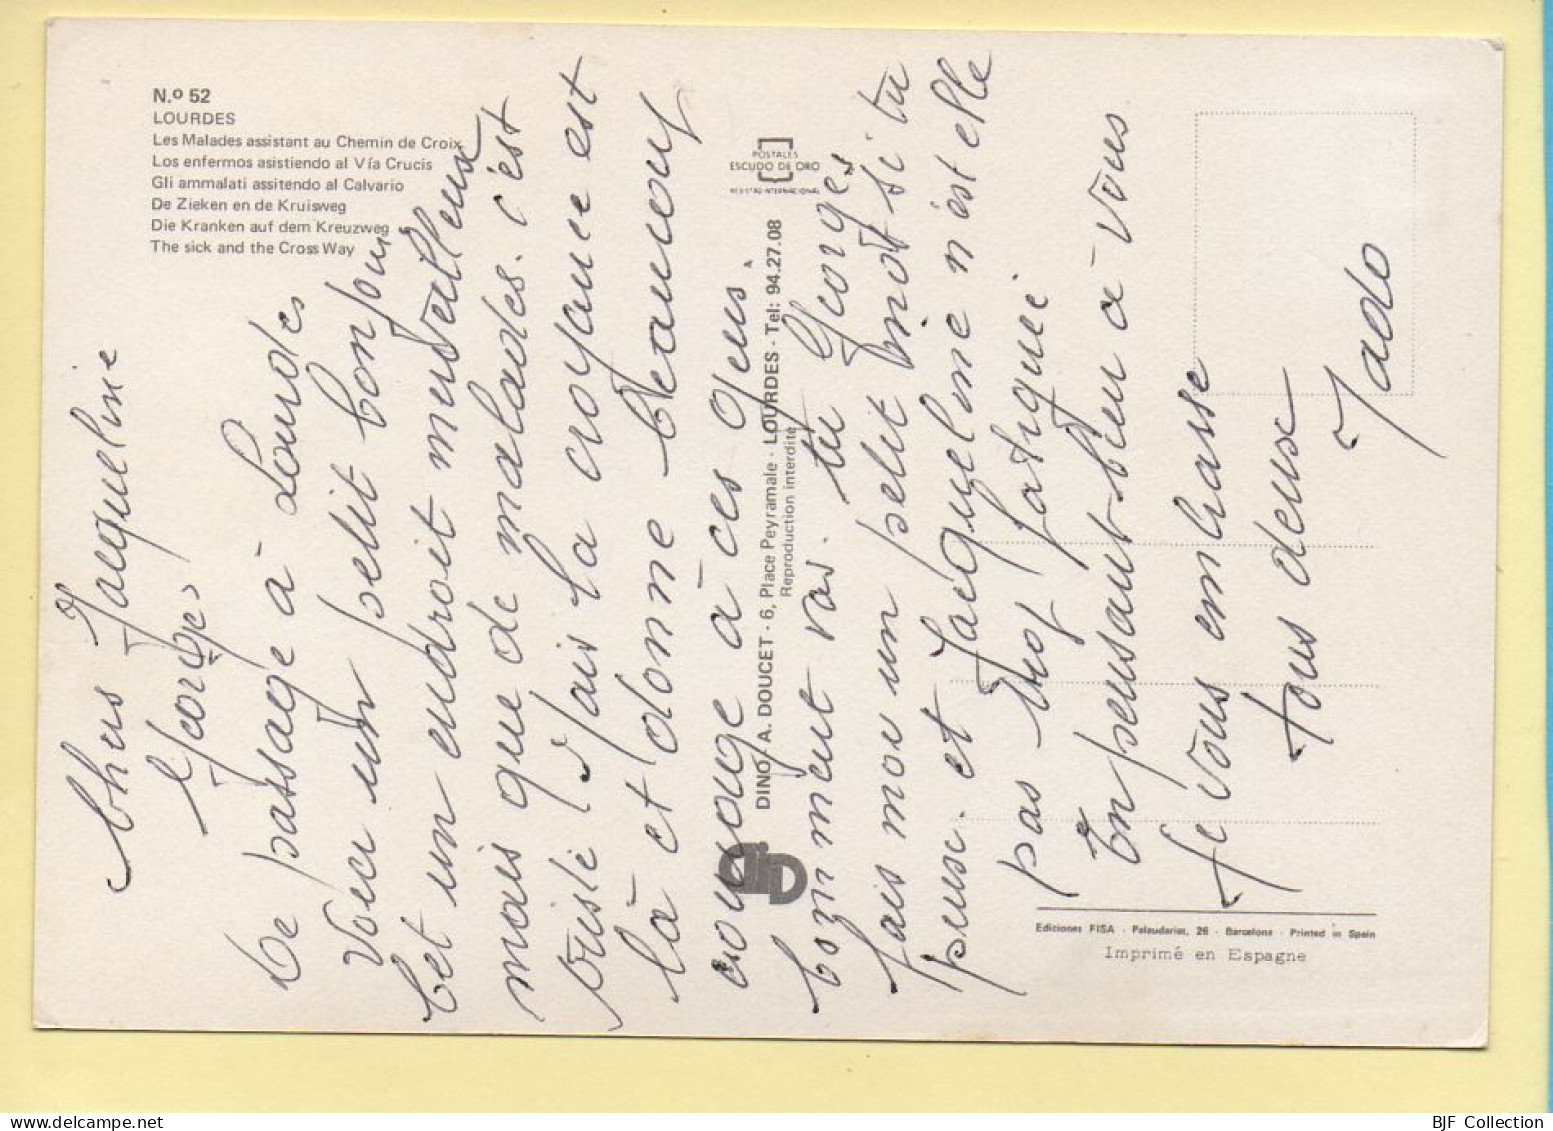 N.º 52
LOURDES
Les Malades assistant au Chemin de Croix
Los enfermos asistiendo al Vía Crucis
Gli ammalati assitendo al Calvario
De Zieken en de Kruisweg
Die Kranken auf dem Kreuzweg
The sick and the Cross Way
POSTALES
ESCUDO DE ORO
REGISTRO INTERNACIONAL
DINO, A. DOUCET - 6, Place Peyramale - LOURDES - Tel: 94.27.08
Reproduction interdite
Ediciones FISA - Palaudarias, 26 - Barcelona - Printed in Spain
Imprimé en Espagne
Chers Jacqueline
Georges
De passage à Lourdes
Voici un petit bonjour
C'et un endroit merveilleux
mais que de malades. c'est
triste mais la croyance est
là et donne beaucoup
courage à ces gens.
comment vas. tu Georges
fais moi un petit mot si tu
peux. et Jacqueline n'est elle
pas trop fatiguée
En pensant bien à vous
je vous embrasse
tous deux
Mado
BJF Collection